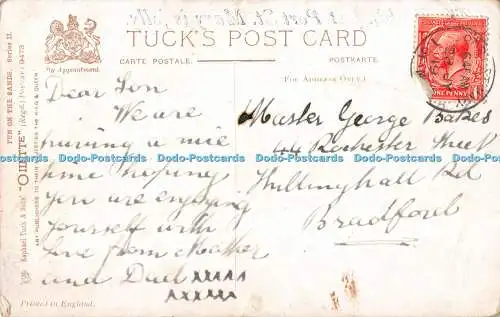 TUCK'S POST CARD
CARTE POSTALE.
POSTKARTE.
By Appointment.
FOR ADDRESS ONLY
FUN ON THE SANDS. Series II.
"OILETTE" (Regd.) Postcard 9473
Raphael Tuck & Sons'
ART PUBLISHERS TO THEIR MAJESTIES THE KING & QUEEN
Dear Son
We are
having a nice
time hoping
you are enjoying
yourself with
love from Mother
and Dad xxxxx
xxxxx
Printed in England.
ONE PENNY
Master George Bakes
44 Rochester Street
Killinghall Rd
Bradford
Dodo-Postcards Dodo-Postcards Dodo-Postcards Dodo-Postcards
Dodo-Postcards Dodo-Postcards Dodo-Postcards Dodo-Postcards